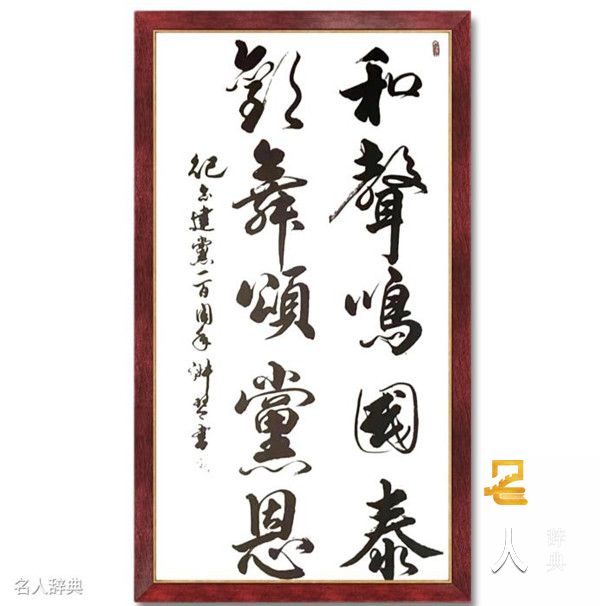 和聲鳴國泰
歡舞頌黨恩
紀念建黨一百周年 琴書
名人辞典
名人
辞典